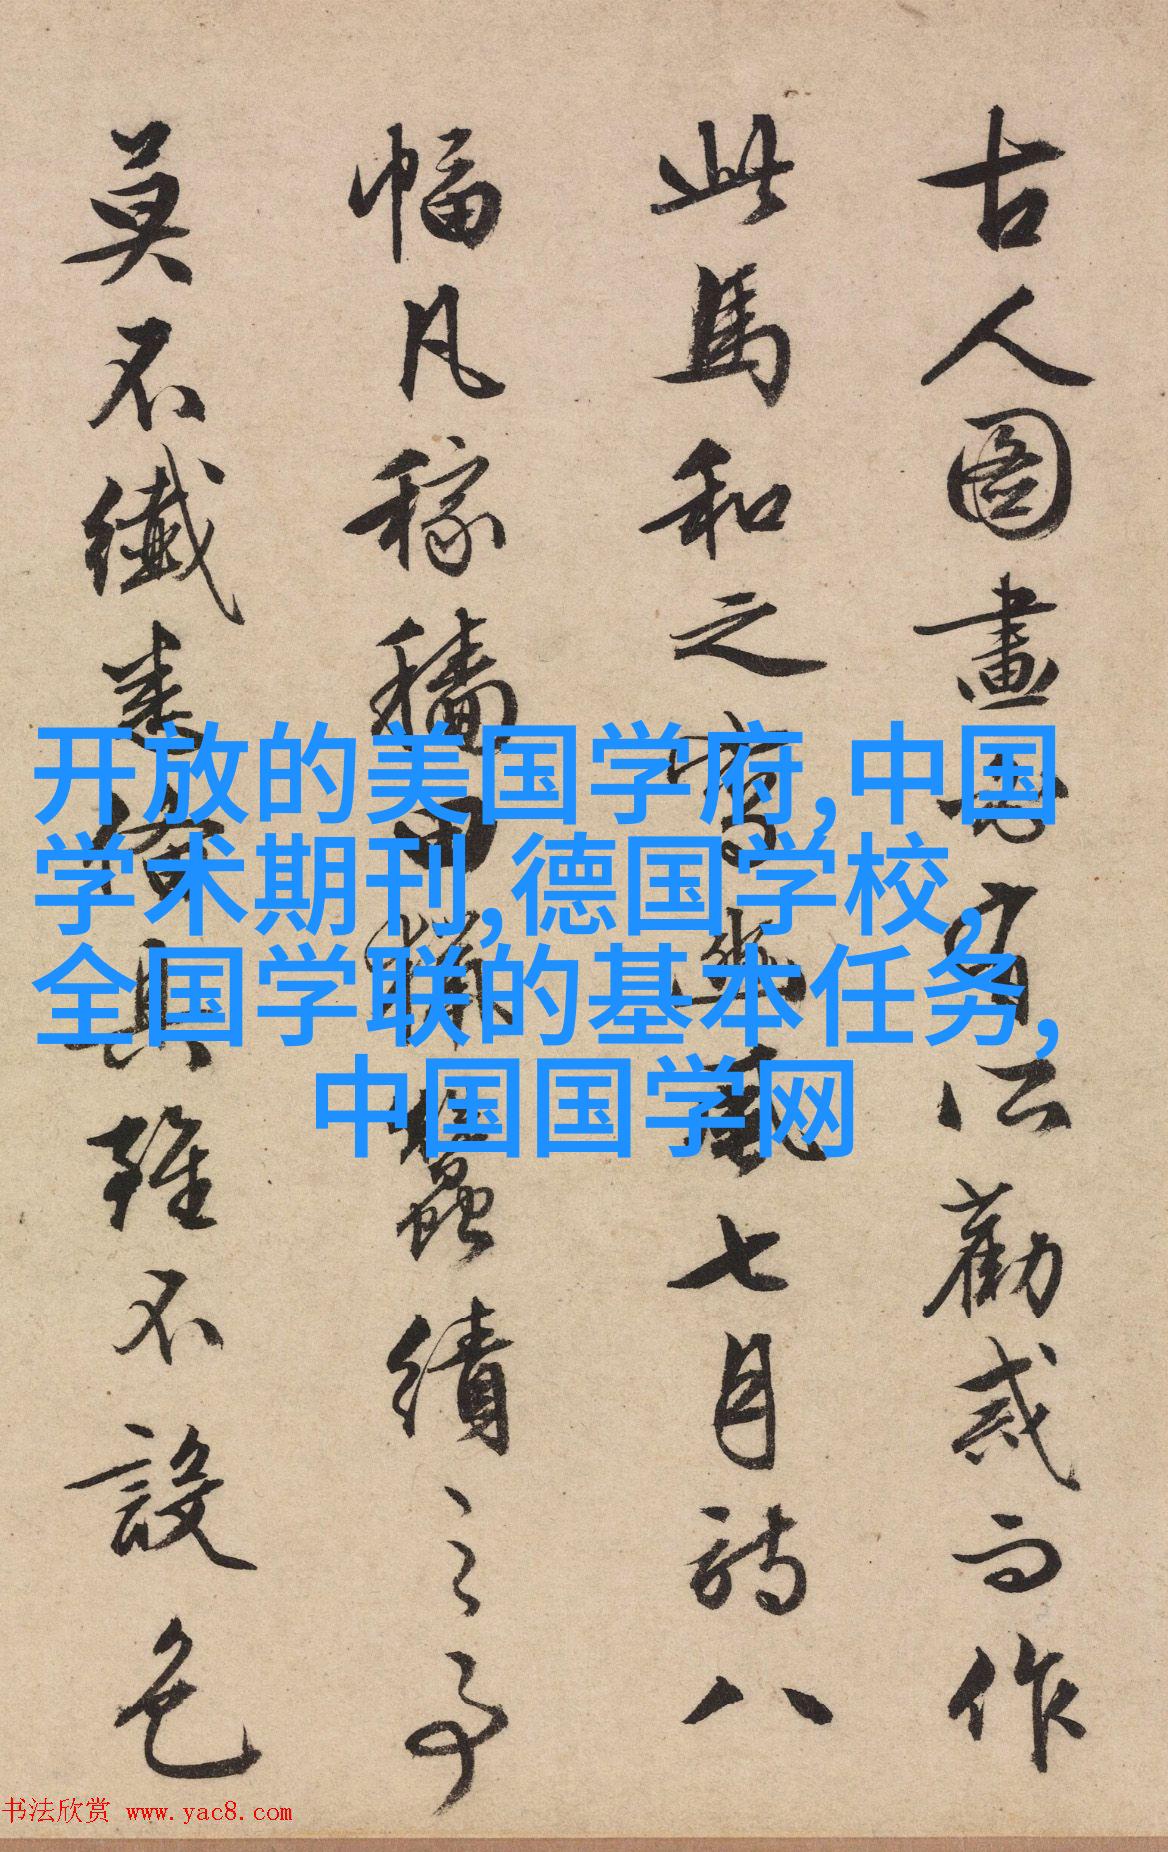 古人圖畫皆有所勸戒而作
此馬和之寫豳風七月詩八
幅凡稼穡田獵蠶績之事
莫不纖悉備具雖不設色
开放的美国学府,中国
学术期刊,德国学校,
全国学联的基本任务,
中国国学网
书法欣赏 www.yac8.com